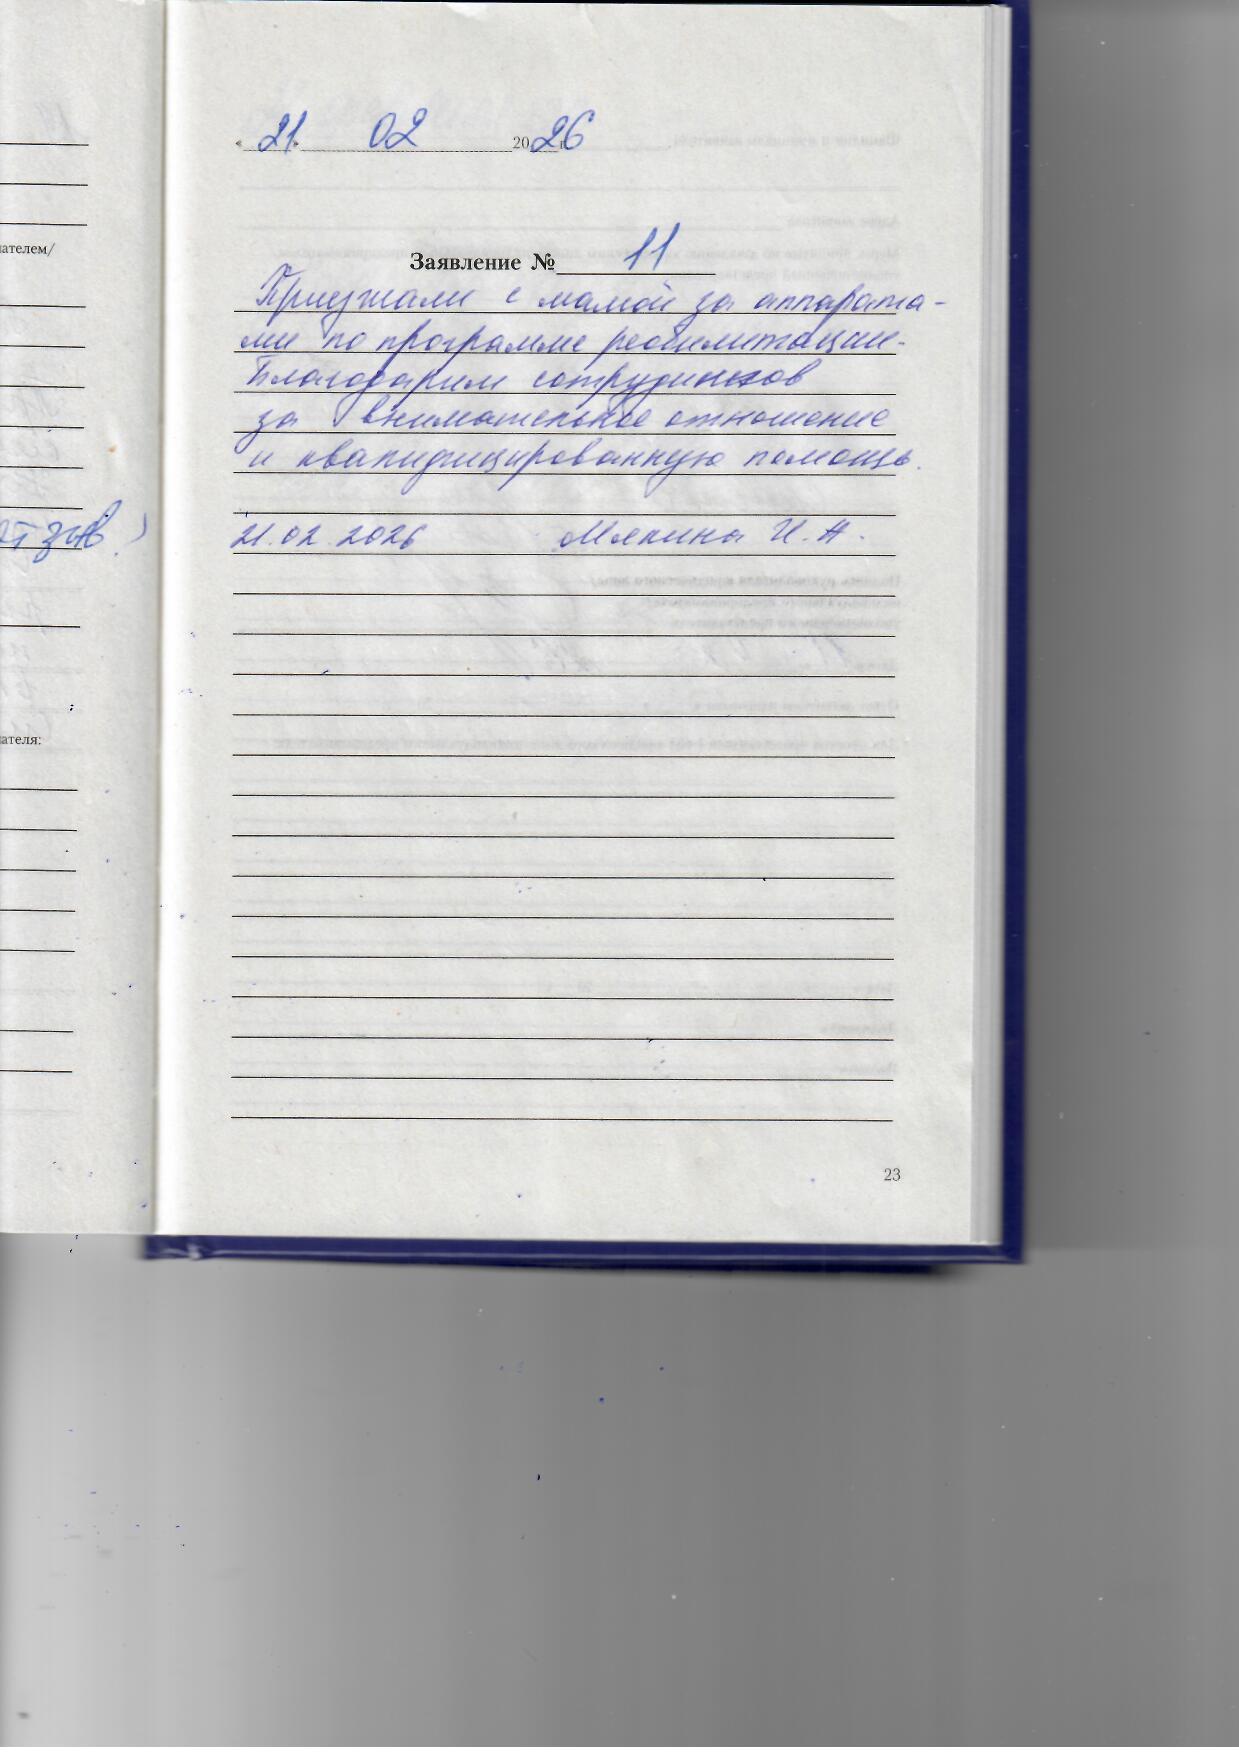 «21» 02 2026 г.
ателем/
Заявление № 11
Приезжали с мамой за аппарата-
ми по программе реабилитации.
Благодарим сотрудников
за внимательное отношение
и квалифицированную помощь.
отзыв)
21.02.2026 Мякина И.А.
ателя:
23